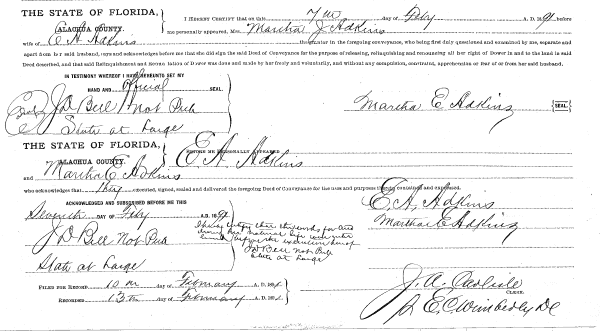 THE STATE OF FLORIDA,
ALACHUA COUNTY.
I HEREBY CERTIFY that on this 7th day of Feby A. D. 1891 before
me personally appeared, Mrs. Martha J Adkins
wife of E A Adkins the grantor in the foregoing conveyance, who being first duly questioned and examined by me, separate and
apart from her said husband, says and acknowledges before me that she did sign the said Deed of Conveyance for the purpose of releasing, relinquishing and renouncing all her right of Dower in and to the land in said
Deed described, and that said Relinquishment and Renunciation of Dower was done and made by her freely and voluntarily, and without any compulsion, constraint, apprehension or fear of or from her said husband.
IN TESTIMONY WHEREOF I HAVE HEREUNTO SET MY
HAND AND Official SEAL.
J D Bell Not Pub
State at Large
Martha E Adkins SEAL.
THE STATE OF FLORIDA,
ALACHUA COUNTY.
BEFORE ME PERSONALLY APPEARED E. A. Adkins
and Martha E Adkins
who acknowledges that they executed, signed, sealed and delivered the foregoing Deed of Conveyance for the uses and purposes therein contained and expressed.
ACKNOWLEDGED AND SUBSCRIBED BEFORE ME THIS
Seventh DAY OF Feby A. D. 1891
J D Bell Not Pub
State at Large
I hereby certify that the words for and
during her natural life
before the execution hereof
J D Bell Not Pub
State at Large
E. A. Adkins
Martha E Adkins
FILED FOR RECORD 10 th day of February A. D. 189
RECORDED 13th day of February A. D. 189
J. A. Carlisle
CLERK.
E C Wimberly DC